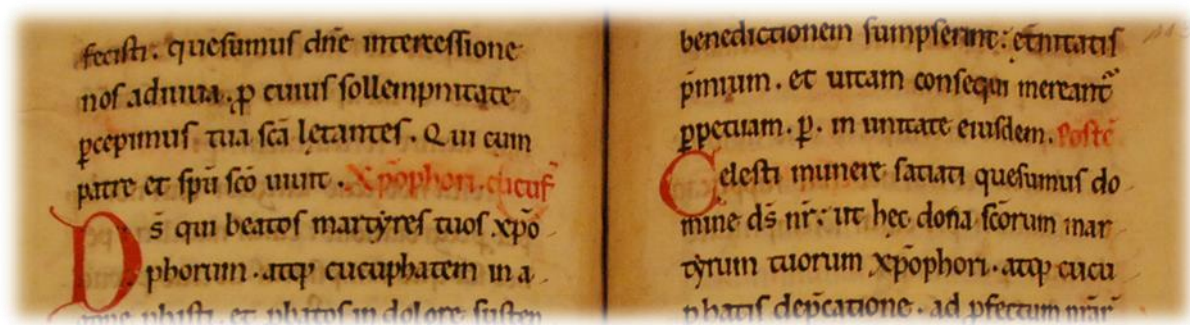 fecisti. quesumus dn̄e intercessione
nos adiuua. ꝑ cuius sollempnitate
ꝑcepimus tua sc̄a letantes. Qui cum
patre et sp̄u sc̄o uiuit. Xp̄ophori. cucuf
D s̄ qui beatos martẏres tuos .xp̄o
phorum . atqꝫ cucuphatem in a
benedictionem sumpserint: et̄nitatis
p̄mium . et uitam consequi mereant᷑
ꝑpetuam. ꝑ. in unitate eiusdem. Postc̄
Celesti munere satiati quesumus do
mine ds̄ nr̄: ut hec dona sc̄orum mar
tẏrum tuorum xp̄ophori. atqꝫ cucu
phatis dep̄catione . ad ꝓfectum nr̄ar